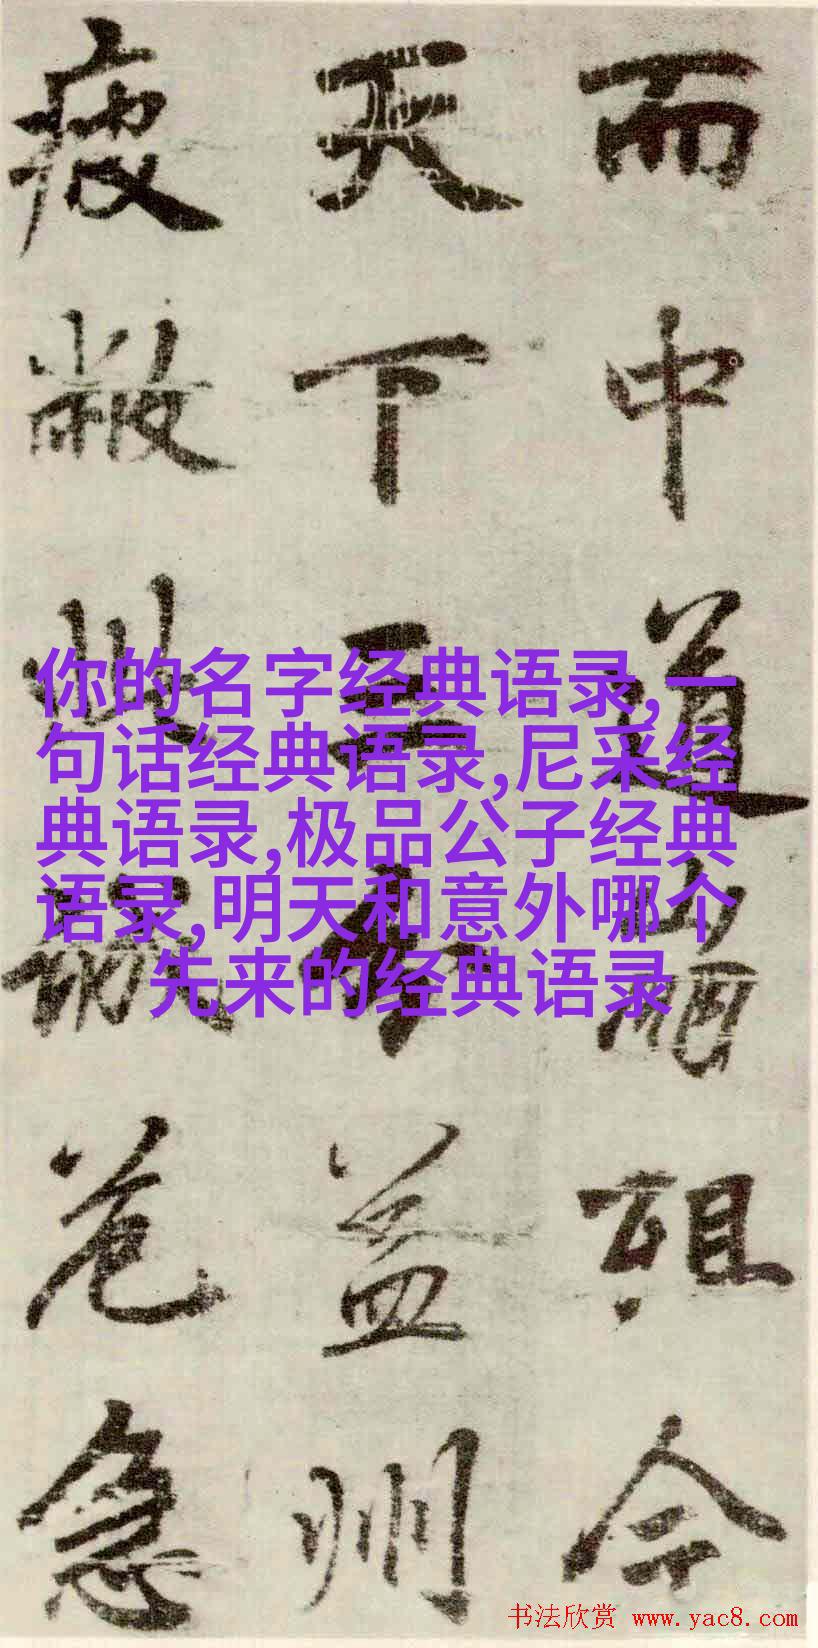 而中道崩殂今
天下三分益州
疲敝此誠危急
你的名字经典语录,一
句话经典语录,尼采经
典语录,极品公子经典
语录,明天和意外哪个
先来的经典语录
书法欣赏 www.yac8.com